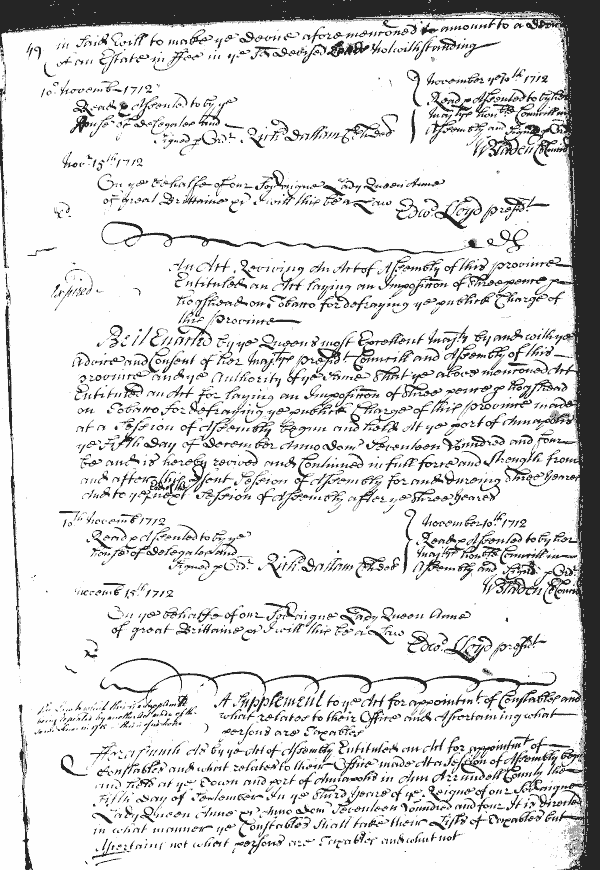 49 in said will to make ye devise afore mentioned to amount to a devise
of an Estate in ffee in ye sd devised Lands Notwithstanding
10th Novembr 1712
Read & Assented to by ye
House of Delegates and
Signed p Ordr Richd Dallam Cl hs del
November ye 10th 1712
Read & Assented to by her
Majtys honble Councill in
Assembly and signed p Ordr
W Bladen Cl Councl
Novr 15th 1712
On ye behalfe of our Soveraigne Lady Queen Anne
of great Brittaine &c I will this be a Law
Edwd Lloyd presidt
An Act Reviving An Act of Assembly of this province
Entituled an Act laying an Imposition of three pence p
hogshead on Tobacco for defraying ye publick Charge of
this province
Expired
Be it Enacted by ye Queens most Excellent Majty by and with ye
Advice and Consent of her Majtys presidt Councill and Assembly of this
province and ye Authority of ye same That ye above mentioned Act
Entituled an Act for laying an Imposition of three pence p hogshead
on Tobacco for defraying ye publick Charge of this province made
at a Session of Assembly begun and held at ye port of Annapolis
ye fifth day of December Anno Dom Seventeen hundred and four
be and is hereby revived and Continued in full force and Strength from
and after this present Session of Assembly for and dureing three yeares
and to ye next Session of Assembly after ye three yeares
10th Novembr 1712
Read & Assented to by ye
house of delegates and
Signed p Ordr Richd Dallam Cl hs del
November 10th 1712
Read & Assented to by her
Majtys honble Councill in
Assembly and Signed p Ordr
W Bladen Cl Councl
Novemb 15th 1712
On ye behalfe of our Soveraigne Lady Queen Anne
of great Brittaine &c I will this be a Law
Edwd Lloyd presidt
A Supplement to ye Act for appointmt of Constables and
what relates to their Office and Ascertaining what
persons are Taxables
Forasmuch As by ye Act of Assembly Entituled an Act for appointmt of
Constables and what relates to their Office made At a Session of Assembly begun
and held at ye Town and port of Annapolis in Ann Arrundell County the
fifth day of September In ye third yeare of ye Reigne of our Soveraigne
Lady Queen Anne &c Anno Dom Seventeen hundred and four It is directed
in what manner ye Constables shall take their Lists of Taxables but
Ascertains not what persons are Taxables and what not